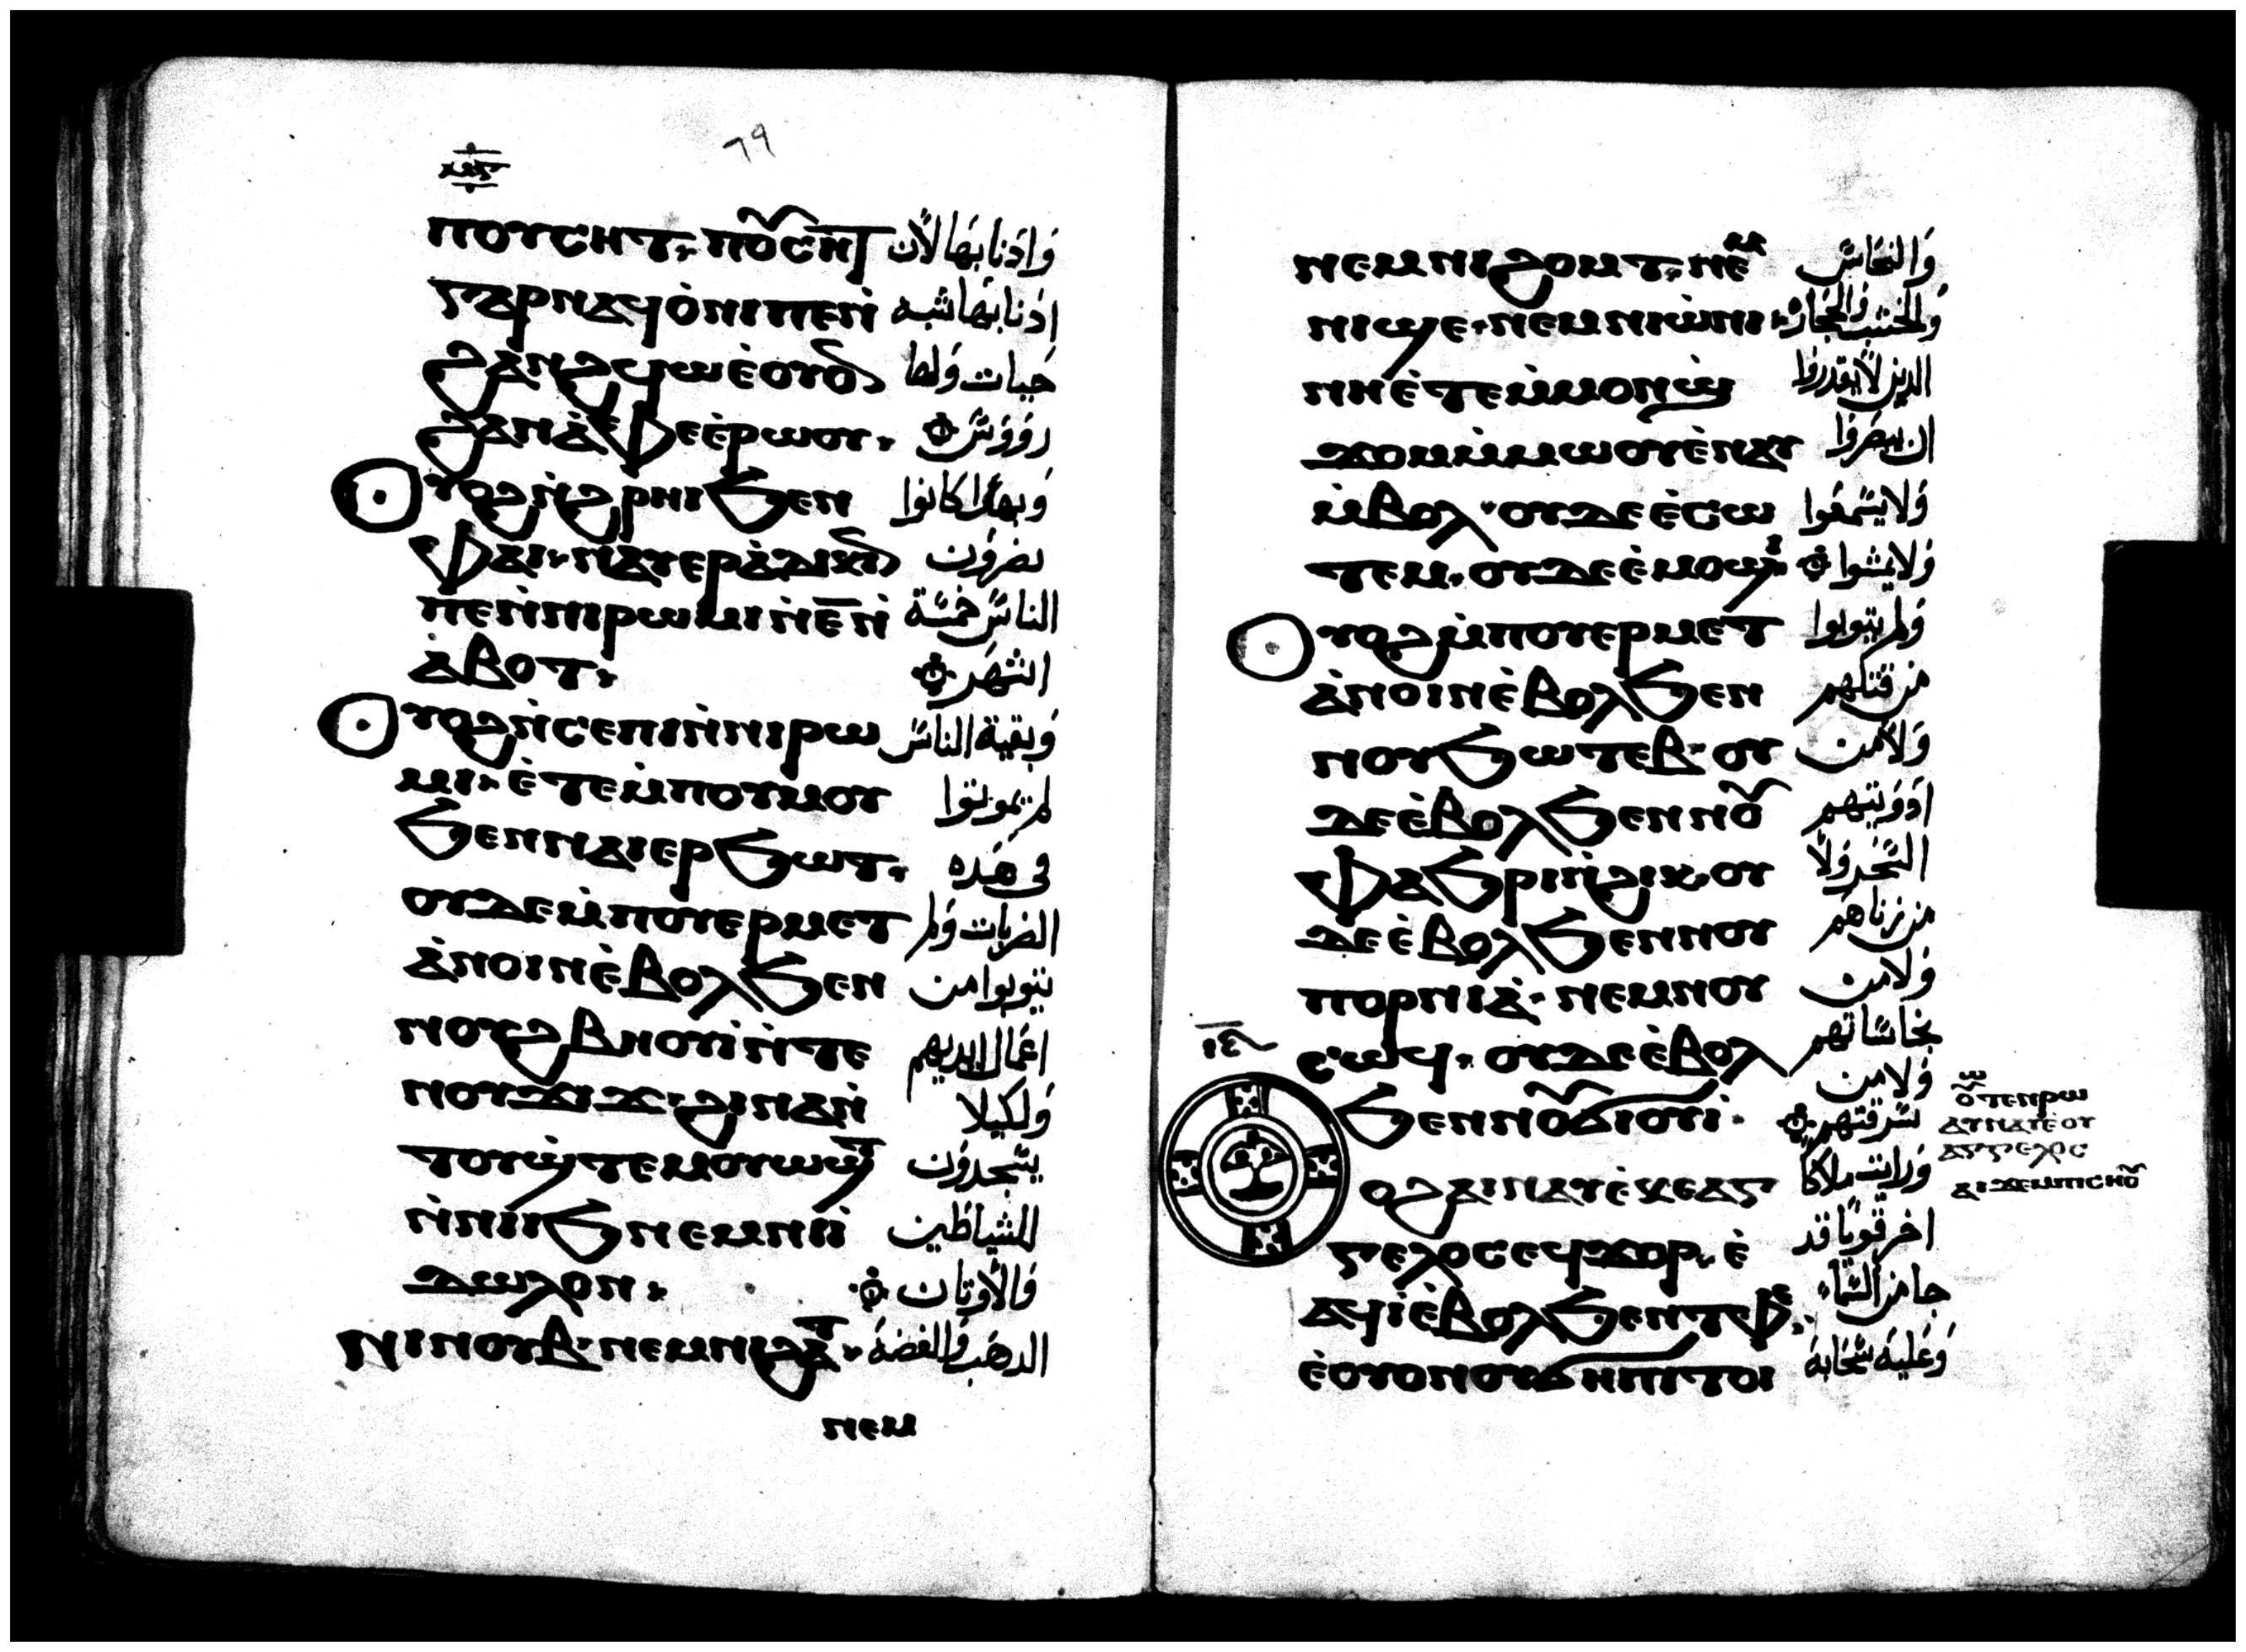 ٦٩
ⲡⲟⲩⲥⲏⲧ ⲡⲟⲩⲥⲏⲧ وَاذنابها لان
ⲅⲁⲣ ⲛⲁϥⲟ̇ⲛⲓ ⲡⲉ ⲛ̇ اذنابها شبه
ϩⲁⲛϩϥⲱ ⲉ̇ⲟⲩⲟ حيات ولها
ϩⲁⲛⲁ̇ⲫⲉ ⲉ̇ⲣⲱⲟⲩ رووس
ⲟⲩⲟϩ ⲛ̇ϩⲣⲏⲓ ϧⲉⲛ وبهذا كانوا
ⲫⲁⲓ ⲛⲁⲩⲉⲣⲁ̇ⲇⲓⲕⲓⲛ يضرون
ⲡⲉ ⲛ̇ⲛⲓⲣⲱⲙⲓ ⲛ̇ⲉ̅ ⲛ̇ الناس خمسة
ⲁ̇ⲃⲟⲧ الشهر
ⲟⲩⲟϩ ⲛ̇ⲥⲉⲡⲓ ⲛ̇ⲛⲓⲣⲱ وبقية الناس
ⲙⲓ ⲉ̇ⲧⲉⲙ̇ⲡⲟⲩⲙⲟⲩ لم يموتوا
ϧⲉⲛ ⲛⲁⲓⲉⲣϧⲱⲧ في هذه
ⲟⲩⲇⲉ ⲙ̇ⲡⲟⲩⲉⲣⲙⲉⲧ الضربات ولم
ⲁ̇ⲛⲟⲓⲛ ⲉ̇ⲃⲟⲗ ϧⲉⲛ يتوبوا من
ⲛⲟⲩϩⲃⲏⲟⲩⲓ̇ ⲛ̇ⲧⲉ اعمال ايديهم
ⲛⲟⲩϫⲓϫ ϩⲓⲛⲁ ⲛ̇ ولكيلا
ⲧⲟⲩϣ̇ⲧⲉⲙⲟⲩⲱϣⲧ يسجدون
ⲛ̇ⲛⲓⲓϧ ⲛⲉⲙ ⲛⲓⲓ̇ للشياطين
ⲇⲱⲗⲟⲛ والاوتان
ⲛⲓⲛⲟⲩⲃ ⲛⲉⲙ ⲛⲓϩⲁⲧ الدهب والفضة
ⲛⲉⲙ
ⲛⲉⲙ ⲛⲓϩⲟⲙⲧ ⲛⲉⲙ والنحاس
ⲛⲓϣⲉ ⲛⲉⲙ ⲛⲓⲱ̇ⲛⲓ والخشب والحجارة
ⲛⲏ ⲉ̇ⲧⲉⲙ̇ⲙⲟⲛϣ̇ الذين لا يقدروا
ϫⲟⲙ ⲙ̇ⲙⲱⲟⲩ ⲉ̇ⲛⲁⲩ ان يبصروا
ⲙ̇ⲃⲟⲗ ⲟⲩⲇⲉ ⲉ̇ⲥⲱ ولا يسمعوا
ⲧⲉⲙ ⲟⲩⲇⲉ ⲉ̇ⲙⲟϣⲓ ولا يمشوا
ⲟⲩⲟϩ ⲙ̇ⲡⲟⲩⲉⲣⲙⲉⲧ ولم يتوبوا
ⲁ̇ⲛⲟⲓⲛ ⲉ̇ⲃⲟⲗ ϧⲉⲛ من قتلهم
ⲛⲟⲩϧⲱⲧⲉⲃ ⲟⲩ ولا من
ⲇⲉ ⲉ̇ⲃⲟⲗ ϧⲉⲛ ⲛⲟⲩ ادويتهم
ⲫⲁϧⲣⲓ ⲛ̇ϩⲓⲕ ⲟⲩ السحر ولا
ⲇⲉ ⲉ̇ⲃⲟⲗ ϧⲉⲛ ⲛⲟⲩ من زناهم
ⲡⲟⲣⲛⲓⲁ̇ ⲛⲉⲙ ⲛⲟⲩ ولا من
ⲥⲱϥ ⲟⲩⲇⲉ ⲉ̇ⲃⲟⲗ نجاساتهم
ϧⲉⲛ ⲛⲟⲩϭⲓⲟⲩⲓ̇ ولا من سرقتهم
ⲟϩ ⲁⲓⲛⲁⲩ ⲉ̇ⲕⲉⲁⲅ ورايت ملاكا
ⲅⲉⲗⲟⲥ ⲉϥϫⲟⲣ ⲉ̇ اخر قويا قد
ⲁϥⲓ̇ ⲉ̇ⲃⲟⲗ ϧⲉⲛ ⲧⲫⲉ جا من السما
ⲉ̇ⲟⲩⲟⲛ ⲟⲩϭⲏⲡⲓ ⲧⲟⲓ وعليه سحابة